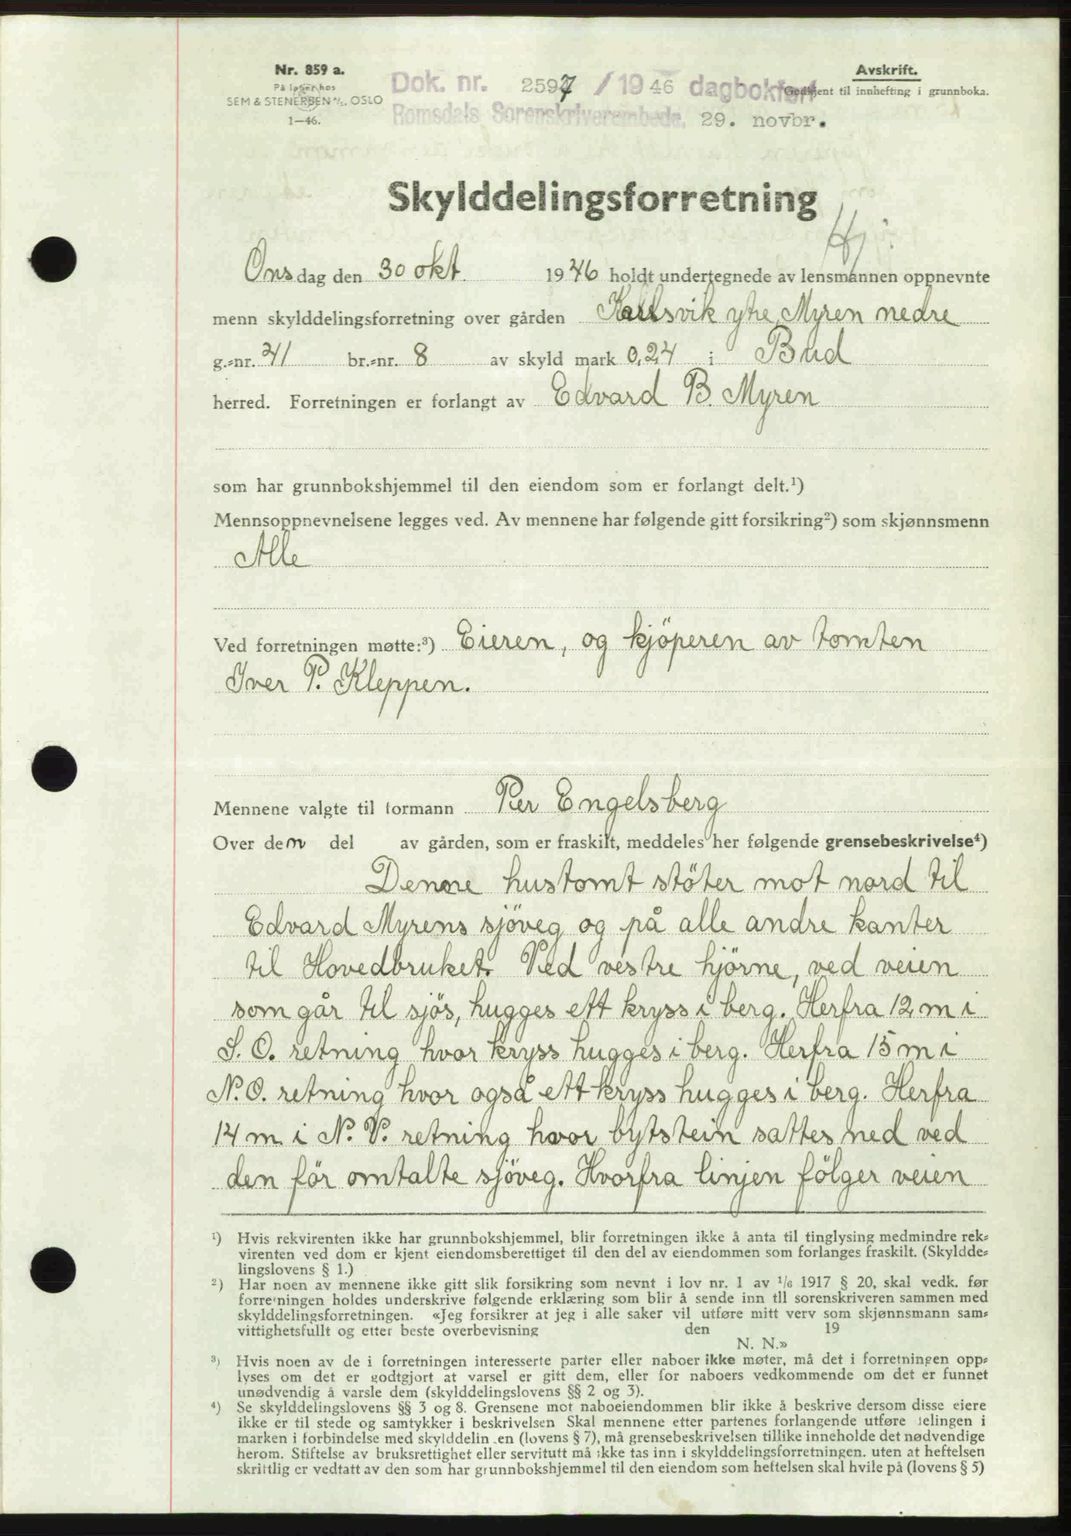 Nr. 859 a.
På lager hos
SEM & STENERSEN A/S, OSLO
1—46.
Dok. nr. 2597 / 1946 dagbokført
Romsdals Sorenskriverembede, 29. novbr.
Avskrift.
Godkjent til innhefting i grunnboka.
Skylddelingsforretning
Onsdag den 30 okt. 1946 holdt undertegnede av lensmannen oppnevnte
menn skylddelingsforretning over gården Karlsvik ytre Myren nedre
g.-nr. 41 br.-nr. 8 av skyld mark 0,24 i Bud
herred. Forretningen er forlangt av Edvard B. Myren
som har grunnbokshjemmel til den eiendom som er forlangt delt.¹)
Mennsoppnevnelsene legges ved. Av mennene har følgende gitt forsikring²) som skjønnsmenn
Alle
Ved forretningen møtte:³) Eieren, og kjöperen av tomten
Iver P. Kleppen.
Mennene valgte til formann Per Engelsberg
Over den del av gården, som er fraskilt, meddeles her følgende grensebeskrivelse⁴)
Denne hustomt stöter mot nord til
Edvard Myrens sjöveg og på alle andre kanter
til Hovedbruket. Ved vestre hjörne, ved veien
som går til sjös, hugges ett kryss i berg. Herfra 12 m i
S. O. retning hvor kryss hugges i berg. Herfra 15 m i
N. O. retning hvor også ett kryss hugges i berg. Herfra
14 m i N. V. retning hvor bytstein sattes ned ved
den för omtalte sjöveg. Hvorfra linjen fölger veien
¹) Hvis rekvirenten ikke har grunnbokshjemmel, blir forretningen ikke å anta til tinglysing medmindre rek-
virenten ved dom er kjent eiendomsberettiget til den del av eiendommen som forlanges fraskilt. (Skyldde-
lingslovens § 1.)
²) Har noen av mennene ikke gitt slik forsikring som nevnt i lov nr. 1 av 1/6 1917 § 20, skal vedk. før
forretningen holdes underskrive følgende erklæring som blir å sende inn til sorenskriveren sammen med
skylddelingsforretningen. «Jeg forsikrer at jeg i alle saker vil utføre mitt verv som skjønnsmann sam-
vittighetsfullt og etter beste overbevisning den 19
N. N.»
³) Hvis noen av de i forretningen interesserte parter eller naboer ikke møter, må det i forretningen opp-
lyses om det er godtgjort at varsel er gitt dem, eller for naboers vedkommende om det er funnet
unødvendig å varsle dem (skylddelingslovens §§ 2 og 3).
⁴) Se skylddelingslovens §§ 3 og 8. Grensene mot naboeiendommen blir ikke å beskrive dersom disse eiere
ikke er til stede og samtykker i beskrivelsen Skal mennene etter partenes forlangende utføre delingen i
marken i forbindelse med skylddelingen (lovens § 7), må grensebeskrivelsen tillike inneholde det nødvendige
herom. Stiftelse av bruksrettighet eller servitutt må ikke tas inn i skylddelingsforretningen. uten at heftelsen
skriftlig er vedtatt av den som har grunnbokshjemmel til den eiendom som heftelsen skal hvile på (lovens § 5)